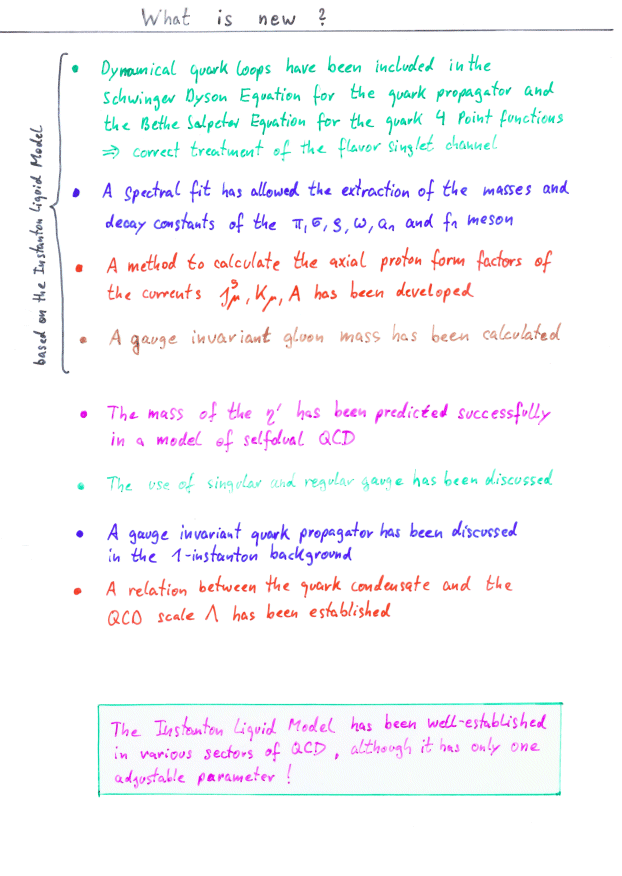 What is new ?
based on the Instanton Liquid Model
• Dynamical quark loops have been included in the
Schwinger Dyson Equation for the quark propagator and
the Bethe Salpeter Equation for the quark 4 Point functions
⇒ correct treatment of the flavor singlet channel
• A spectral fit has allowed the extraction of the masses and
decay constants of the π, σ, ρ, ω, a₁ and f₁ meson
• A method to calculate the axial proton form factors of
the currents J⁵μ, Kμ, A has been developed
• A gauge invariant gluon mass has been calculated
• The mass of the η' has been predicted successfully
in a model of selfdual QCD
• The use of singular and regular gauge has been discussed
• A gauge invariant quark propagator has been discussed
in the 1-instanton background
• A relation between the quark condensate and the
QCD scale Λ has been established
The Instanton Liquid Model has been well-established
in various sectors of QCD, although it has only one
adjustable parameter !